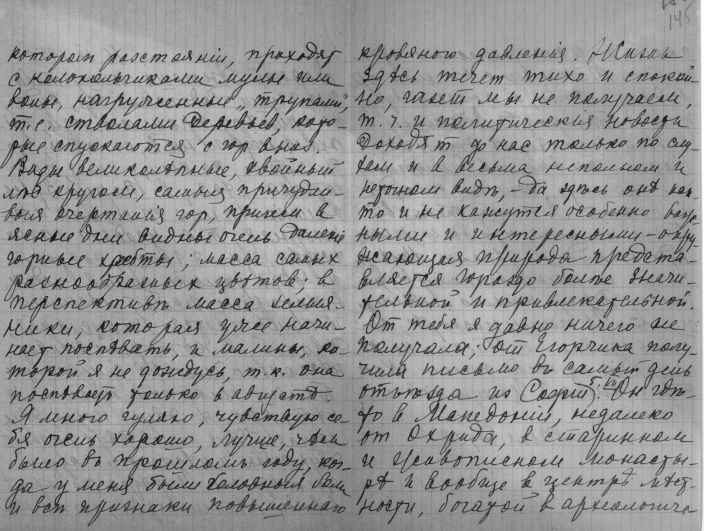 146
котором разстояніи, проходят
с колокольчиками мулы или
волы, нагруженные „трупами",
т.е. стволами деревьев, кото-
рые спускаются с гор вниз.
Виды великолепные, хвойный
лес кругом, самыя причудли-
выя очертанія гор, причем в
ясные дни видны очень далекіе
горные хребты; масса самых
разнообразных цвѣтов; в
перспективѣ масса земля-
ники, которая уже начи-
нает поспѣвать, и малины, ко-
торой я не дождусь, т.к. она
поспѣвает только в августѣ.
Я много гуляю, чувствую се-
бя очень хорошо, лучше, чѣм
было въ прошлом году, ког-
да у меня были головныя боли
и всѣ признаки повышеннаго
кровяного давленія. Жизнь
здѣсь течет тихо и спокой-
но, газет мы не получаем,
т.ч. и политическия новости
доходят до нас только по слу-
хам и в весьма неполном и
неточном видѣ, – да здѣсь онѣ как-
то и не кажутся особенно важ-
ными и интересными – окру-
жающая природа предста-
вляется гораздо болѣе значи-
тельной и привлекательной.
От тебя я давно ничего не
получала; от Игорчика полу-
чила письмо въ самый день
отъѣзда из Софіи. Он гдѣ-
то в Македоніи, недалеко
от Охрида, в старинном
и живописном монасты-
рѣ и вообще в центрѣ мѣст-
ности, богатой в археологиче-